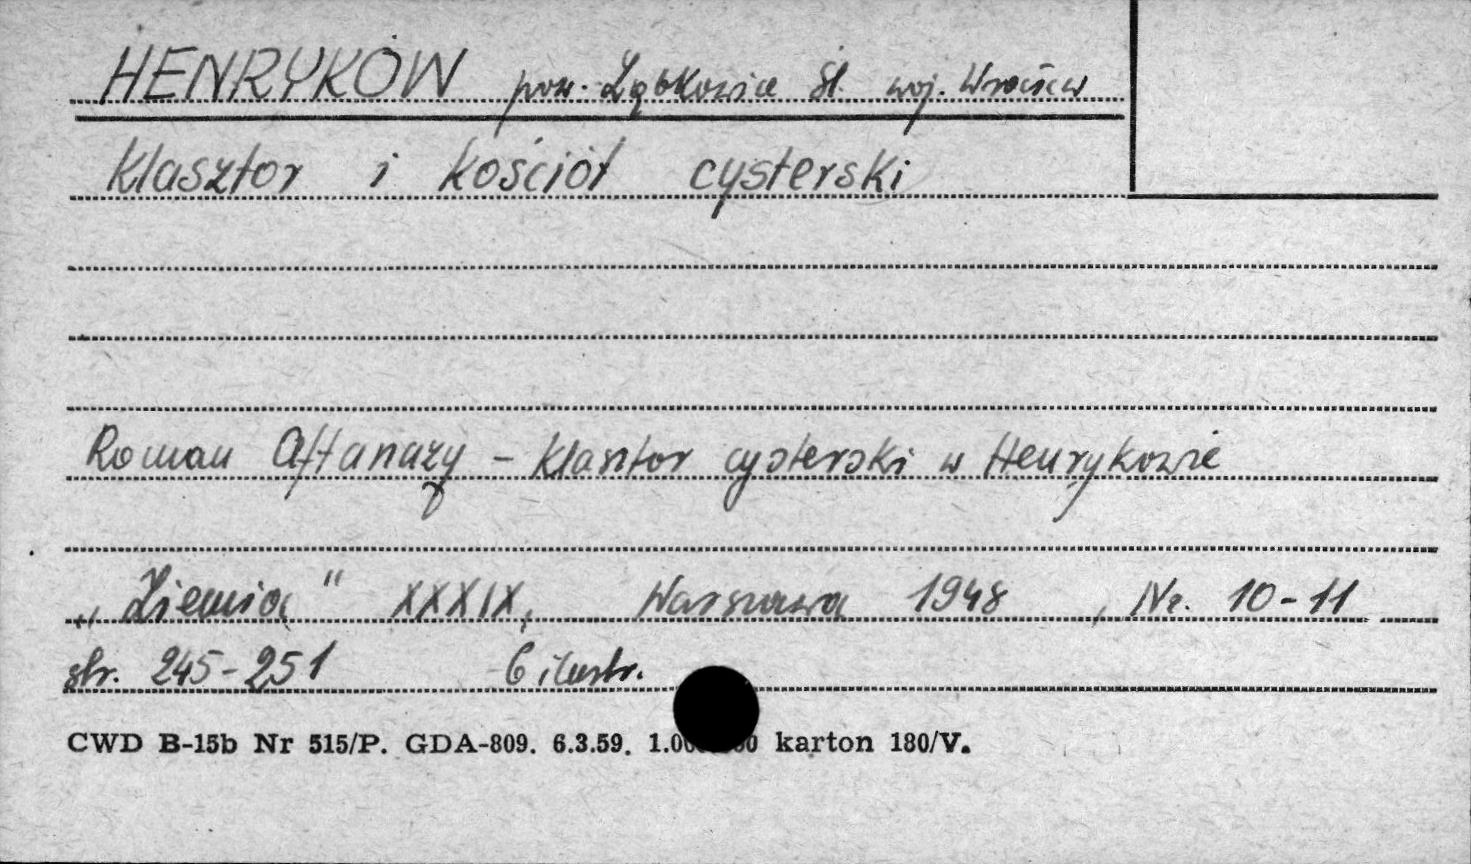 HENRYKÓW pow. Ząbkowice Śl. woj. Wrocław
Klasztor i kościół cysterski
Roman Aftanazy - Klasztor cysterski w Henrykowie
„Ziemia" XXXIX, Warszawa 1948, Nr. 10-11
str. 245-251 6 ilustr.
CWD B-15b Nr 515/P. GDA-809. 6.3.59. karton 180/V.